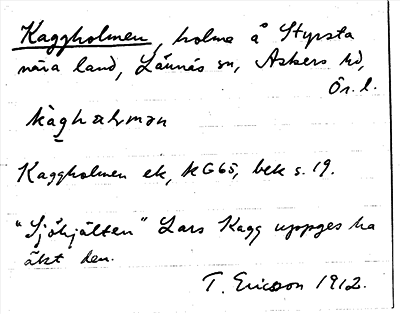 Kaggholmen, holme å Styrsta
nära land, Lännäs sn, Askers hd,
Ör. l.
kàghəlmən
Kaggholmen ek, KG65, bek s. 19.
"Sjöhjälten" Lars Kagg uppges ha
ägt den.
T. Ericsson 1912.